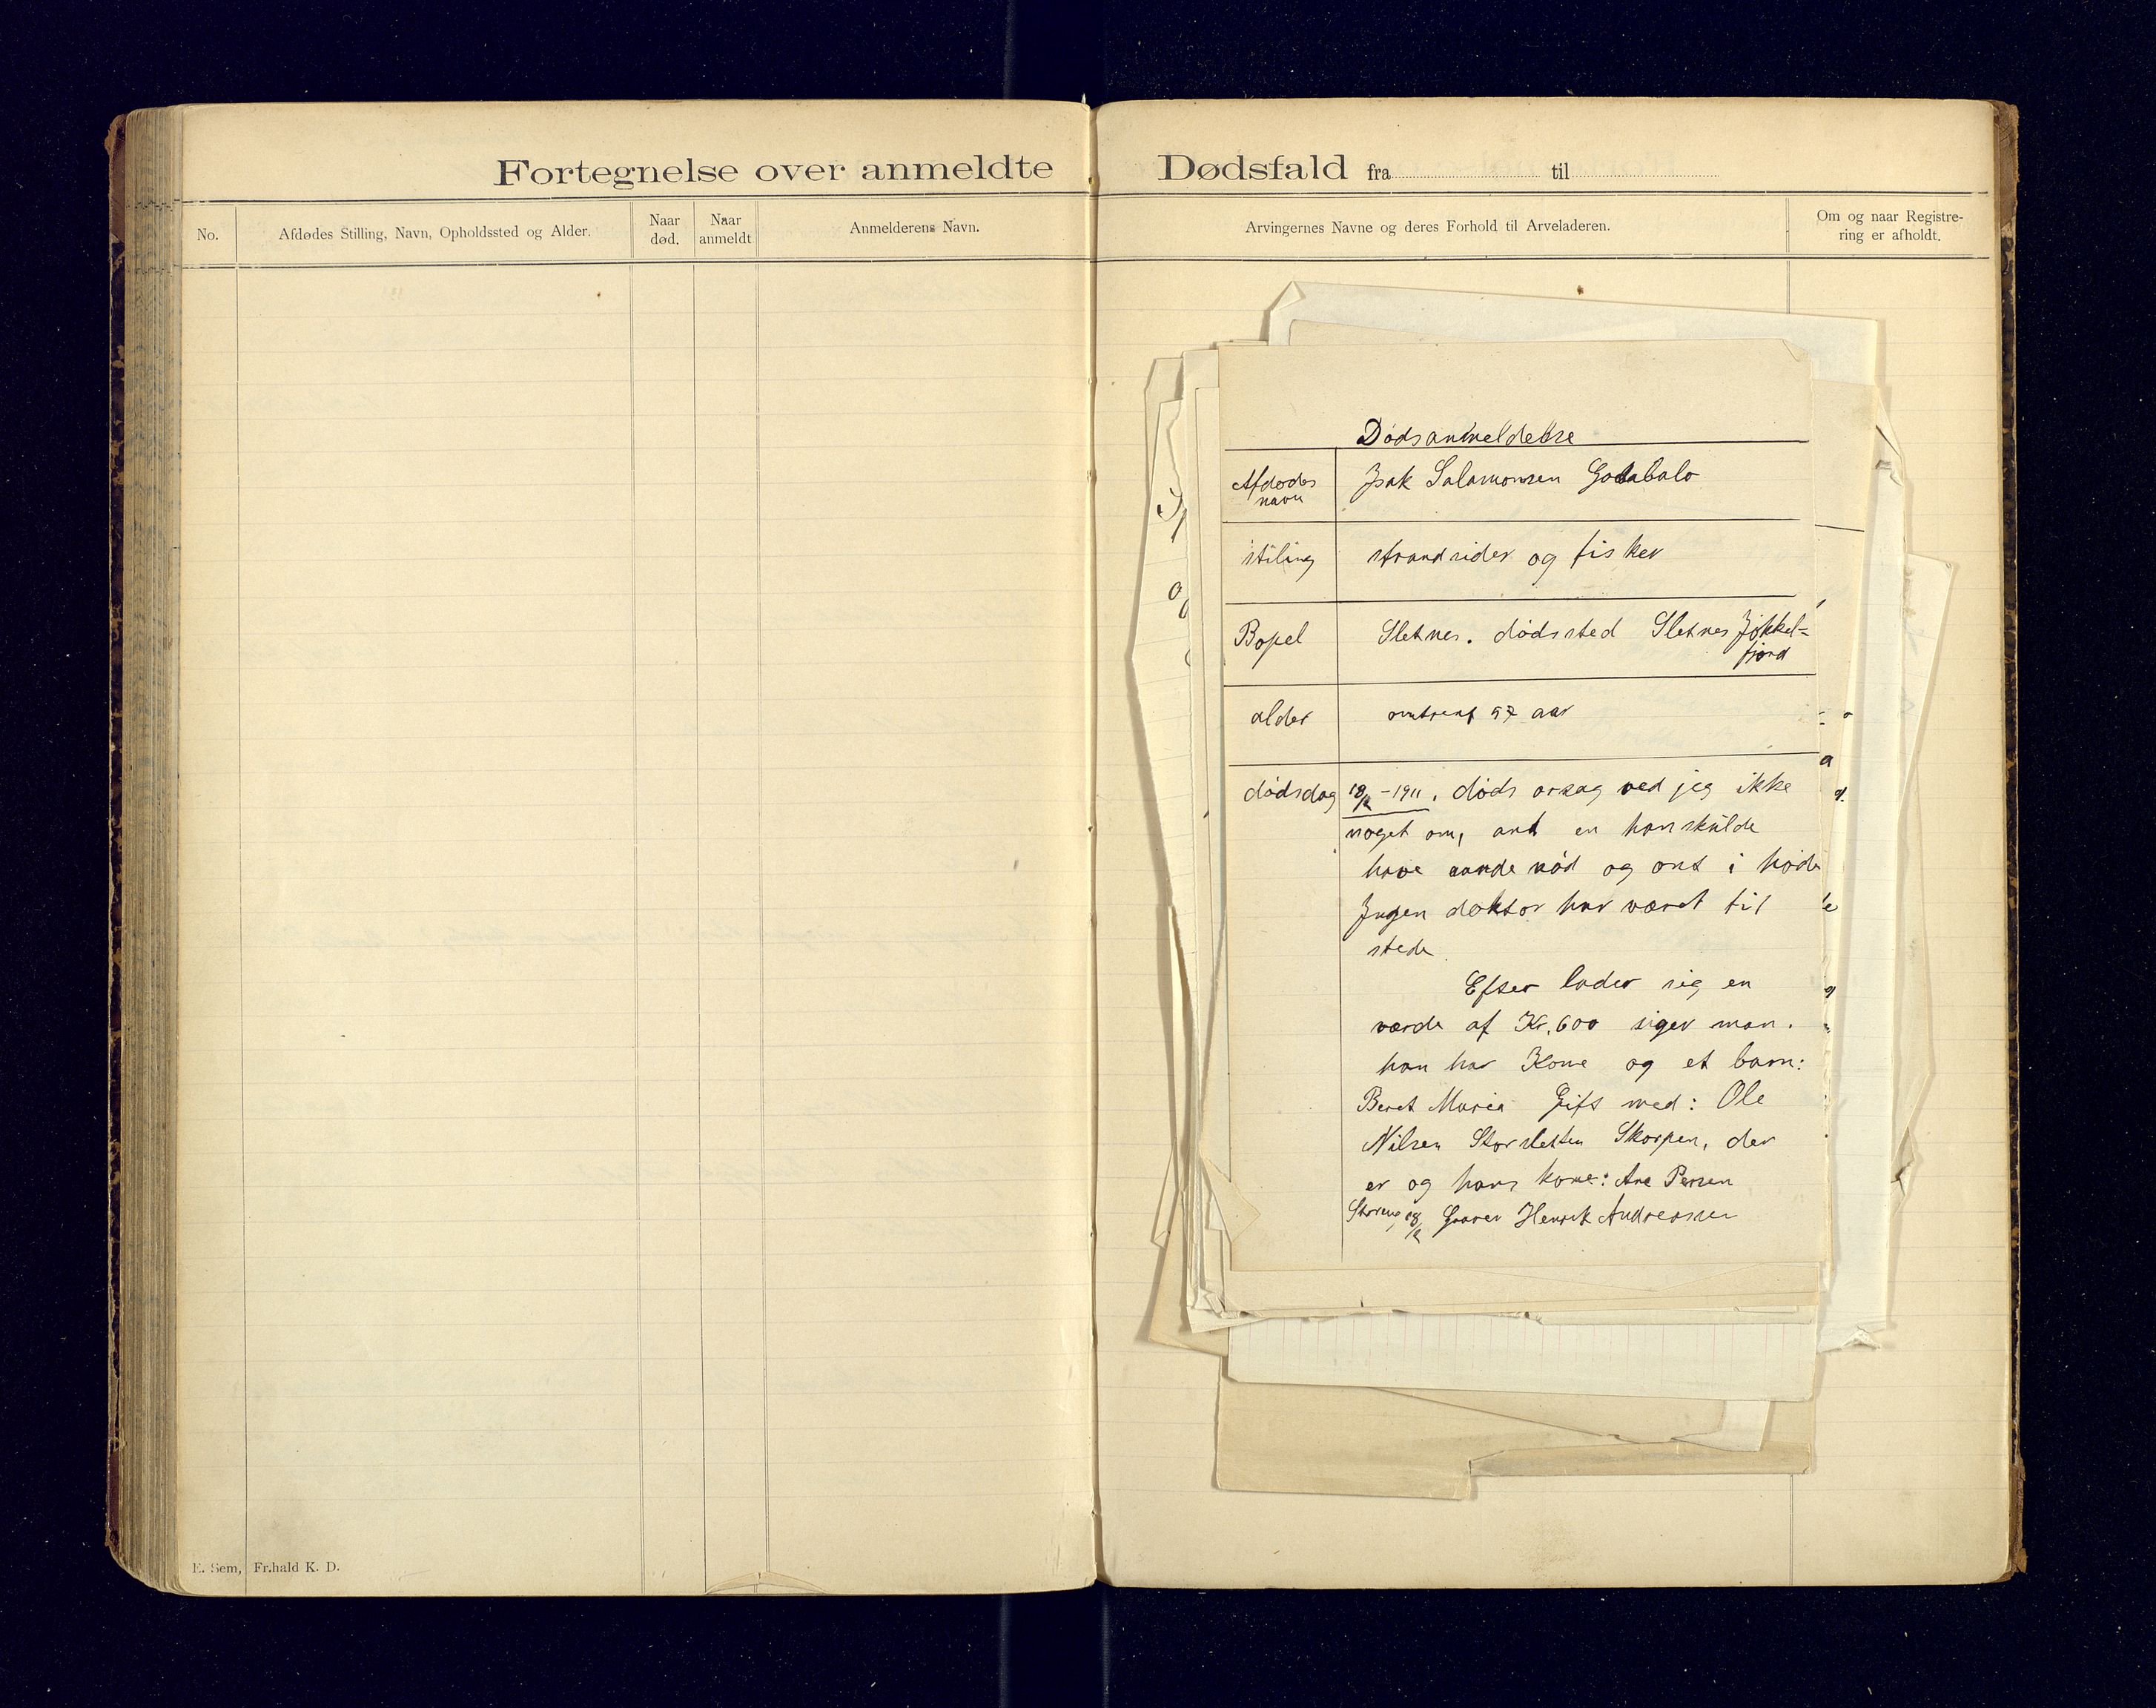 Fortegnelse over anmeldte Dødsfald fra til
No.
Afdødes Stilling, Navn, Opholdssted og Alder.
Naar død.
Naar anmeldt
Anmelderens Navn.
Arvingernes Navne og deres Forhold til Arveladeren.
Om og naar Registre-
ring er afholdt.
Dødsanmeldelse
Afdødes navn
Isak Salamonsen
stiling
strandsider og fisker
Bopel
Sletnes. dødssted Sletnes Jøkkel=
fjord
alder
omtrent 57 aar
dødsdag
18/2 - 1911. døds orsag ved jeg ikke
noget om, ant en han skulde
have aande nød og ont i hode
Ingen doktor har været til
stede
Efter lader sig en
værde af Kr. 600 siger man.
han har Kone og et barn:
Beret Maria Gift med: Ole
Nilsen Storsletten Skorpen, der
er og hans kone: Ane Persen
Storeng 18/2 Graver Henrik Andreassen
E. Sem, Fr.hald K. D.